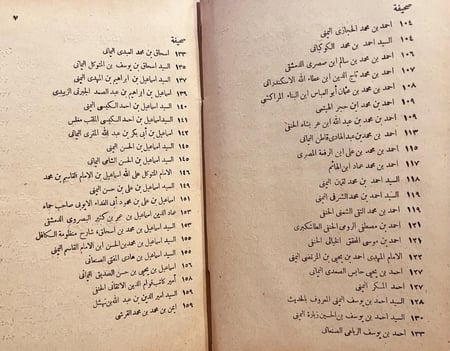 صحيفة
١٠٤ احمد بن محمد الحجازى اليمنى
١٠٤ السيد احمد بن محمد الكوكبانى
١٠٦ احمد بن محمد بن سالم ابن صصرى الدمشقى
١٠٧ احمد بن محمد تاج الدين ابن عطاء الله الاسكندرانى
١٠٨ احمد بن محمد بن عثمان أبو العباس ابن البناء المراكشى
١٠٩ احمد بن محمد ابن حجر الهيتمى
١٠٩ احمد بن محمد بن عبد الله ابن عربشاه الحنفى
١١٣ احمد بن محمد بن عبدالهادى قاطن اليمانى
١١٥ احمد بن محمد بن على ابن الرفعة المصرى
١١٧ احمد بن محمد عماد ابن الهائم
١١٨ احمد بن محمد لقمان اليمنى
١١٩ السيد احمد بن محمد الشرفى اليمنى
١١٩ احمد بن محمد التقى الشمنى الحنفى
١٢١ احمد بن مصطفى الرومى الحنفى الطاشكبرى
١٢١ احمد بن موسى المحقق الخيالى الحنفى
١٢٢ الامام المهدى احمد بن يحيى بن المرتضى اليمنى
١٢٧ احمد بن يحيى حابس الصعدى اليمانى
١٢٧ احمد اليمنى
١٢٨ السيد احمد بن يوسف اليمنى المعروف بالحديث
١٣٠ السيد احمد بن يوسف بن الحسين زبارة اليمنى
١٣٣ احمد بن يوسف الرباعى الصنعانى
٧
صحيفة
١٣٣ اسحاق بن محمد العبدى اليمانى
١٣٥ السيد اسحاق بن يوسف بن المتوكل اليمانى
١٣٧ السيد اسماعيل بن ابراهيم بن المهدى اليمنى
١٣٩ اسماعيل بن ابراهيم بن عبد الصمد الجبرتى الزبيدى
١٤٠ السيد اسماعيل بن احمد الكبسى اليمنى
١٤١ السيد اسماعيل بن احمد الكبسى الملقب مغلس
١٤٢ اسماعيل بن أبى بكر بن عبد الله المقرى اليمانى
١٤٥ السيد اسماعيل بن الحسن اليمنى
١٤٥ السيد اسماعيل بن الحسن الشامى اليمانى
١٤٦ الامام المتوكل على الله اسماعيل بن الامام القاسم بن محمد
١٤٩ السيد اسماعيل بن على بن حسن اليمنى
١٥١ اسماعيل بن على بن محمود أبى الفداء الايوبى صاحب حماه
١٥٣ عماد الدين اسماعيل بن عمر بن كثير البصروى الدمشقى
١٥٣ السيد اسماعيل بن محمد بن اسحاق شارح منظومة الكافل
١٥٥ السيد اسماعيل بن محمد بن الحسن ابن الامام القاسم اليمنى
١٥٥ السيد اسماعيل بن هادى المفتى الصنعانى
١٥٦ اسماعيل بن يحيى بن حسن الصديق اليمانى
١٥٨ أمير كاتب قوام الدين الاتقانى الحنفى
١٥٨ السيد امير الدين بن عبد الله بن نهشل
١٥٩ ايمن بن محمد بن محمد القرشى